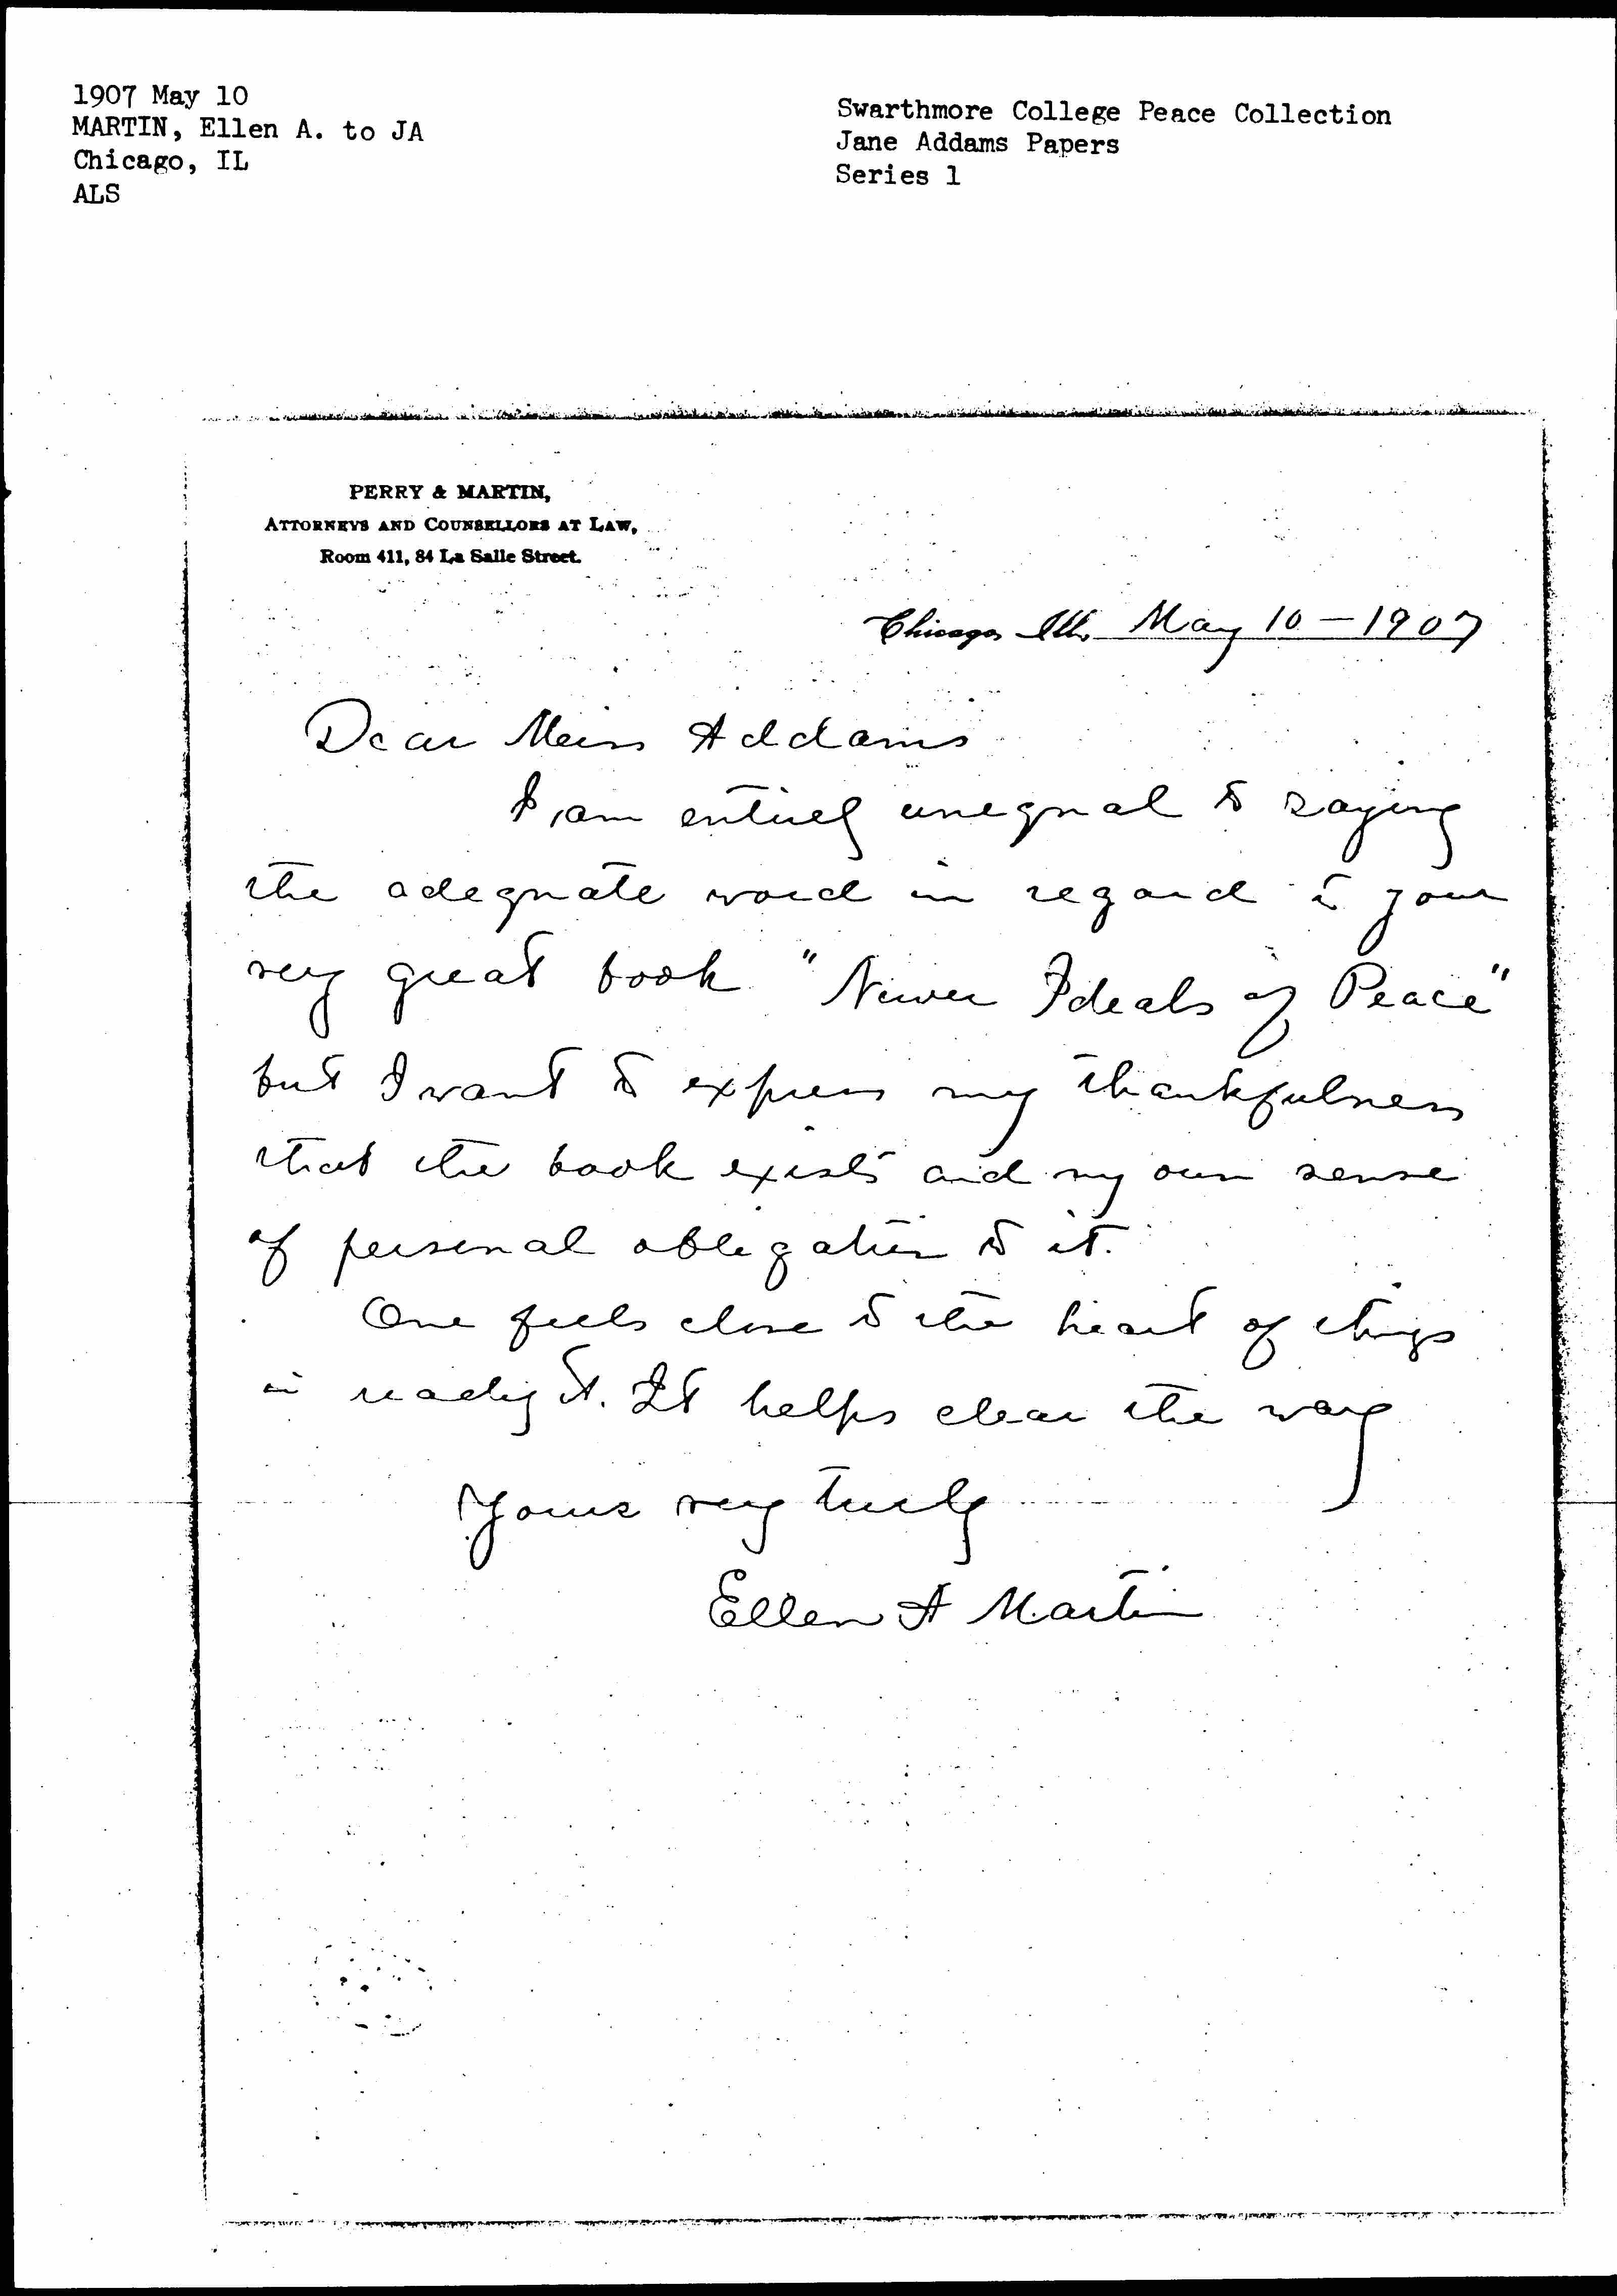 1907 May 10
MARTIN, Ellen A. to JA
Chicago, IL
ALS
Swarthmore College Peace Collection
Jane Addams Papers
Series 1
PERRY & MARTIN,
ATTORNEYS AND COUNSELLORS AT LAW,
Room 411, 84 La Salle Street.
Chicago, Ill., May 10 – 1907
Dear Miss Addams
I am entirely unequal to saying
the adequate word in regard to your
very great book "Newer Ideals of Peace"
but I want to express my thankfulness
that the book exists and my own sense
of personal obligation to it.
One feels close to the heart of things
in reading it. It helps clear the way
Yours very truly
Ellen A Martin